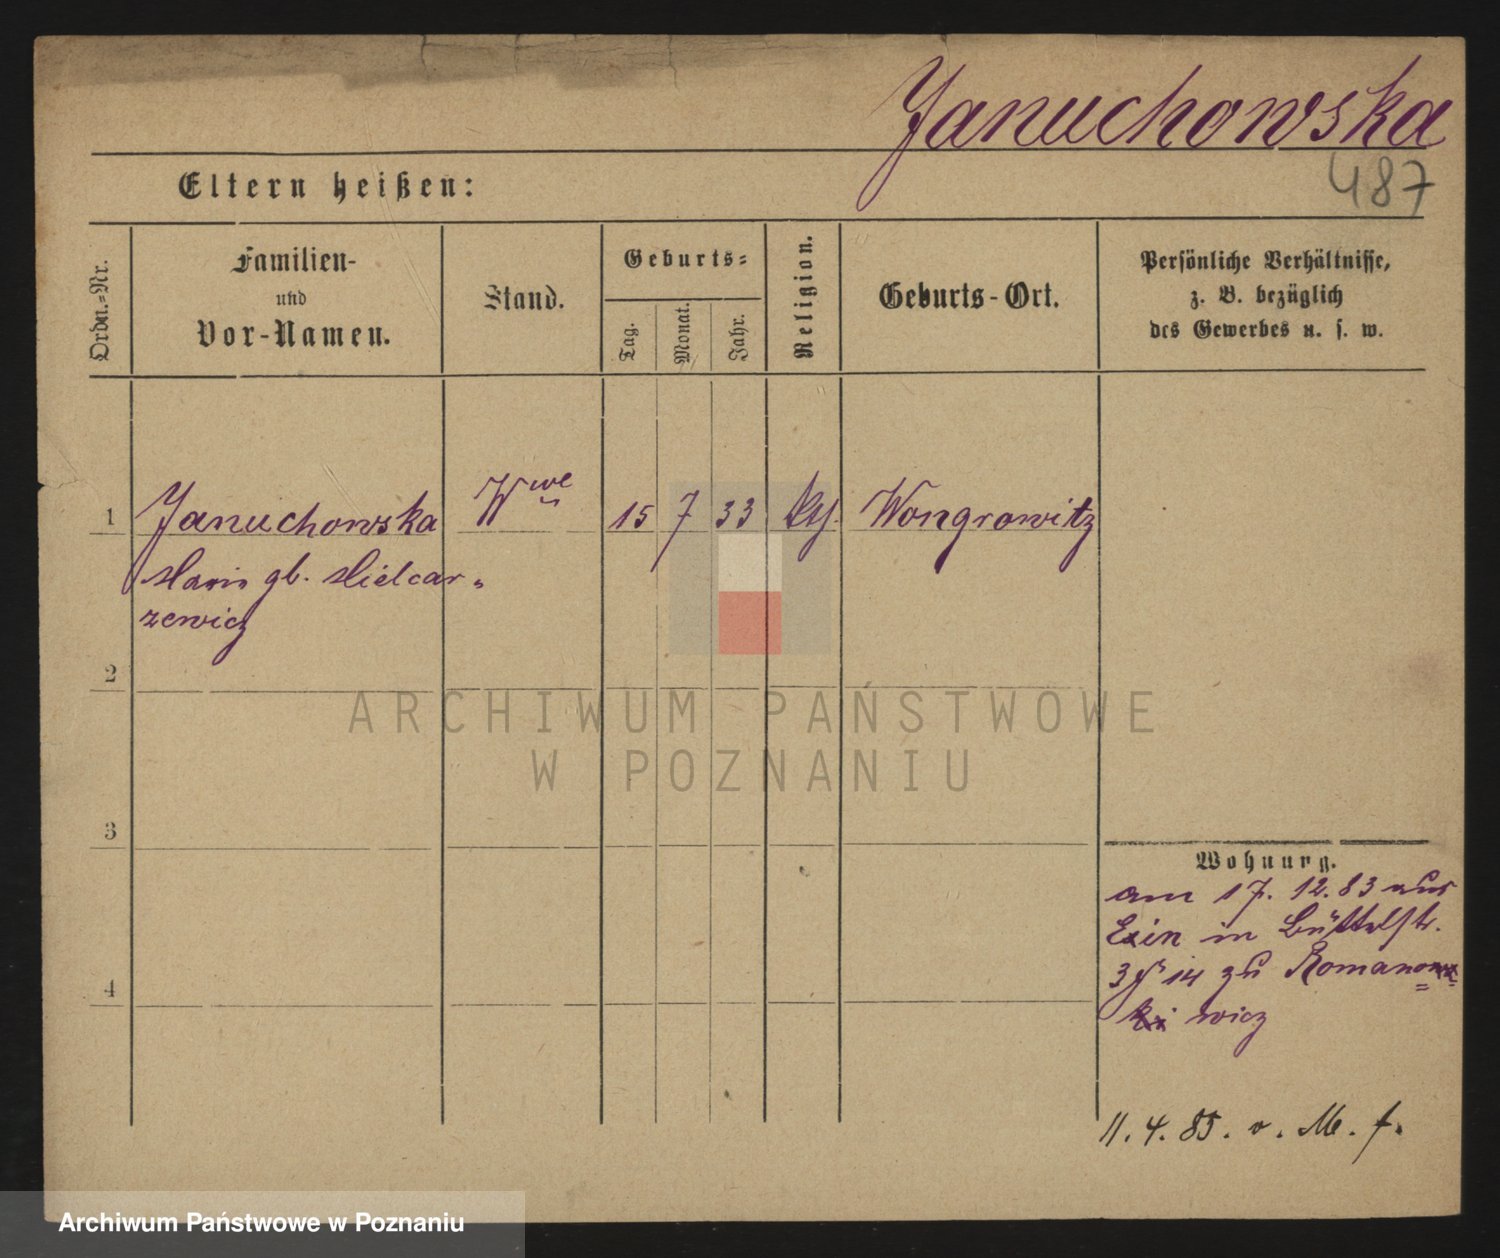 Januchowska
487
Eltern heißen:
Ordn.-Nr.
Familien-
und
Vor-Namen.
Stand.
Geburts-
Tag.
Monat.
Jahr.
Religion.
Geburts-Ort.
Persönliche Verhältnisse,
z. B. bezüglich
des Gewerbes u. s. w.
1 Januchowska Wwe 15 7 33 Wongrowitz
Marie gb. Mielcar-
zewicz
2
ARCHIWUM PAŃSTWOWE
W POZNANIU
3
Wohnung.
am 17. 12. 83 aus
Exin in Büttelstr.
14 zu Romanow
ki wicz
4
11. 4. 85. v. M. f.
Archiwum Państwowe w Poznaniu